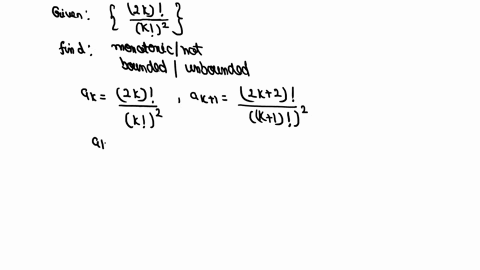 Given: { (2k)! / (k!)² }
find: monotonic/not
bounded | unbounded
aₖ = (2k)! / (k!)² , aₖ₊₁ = (2k+2)! / ((k+1)!)²
a|